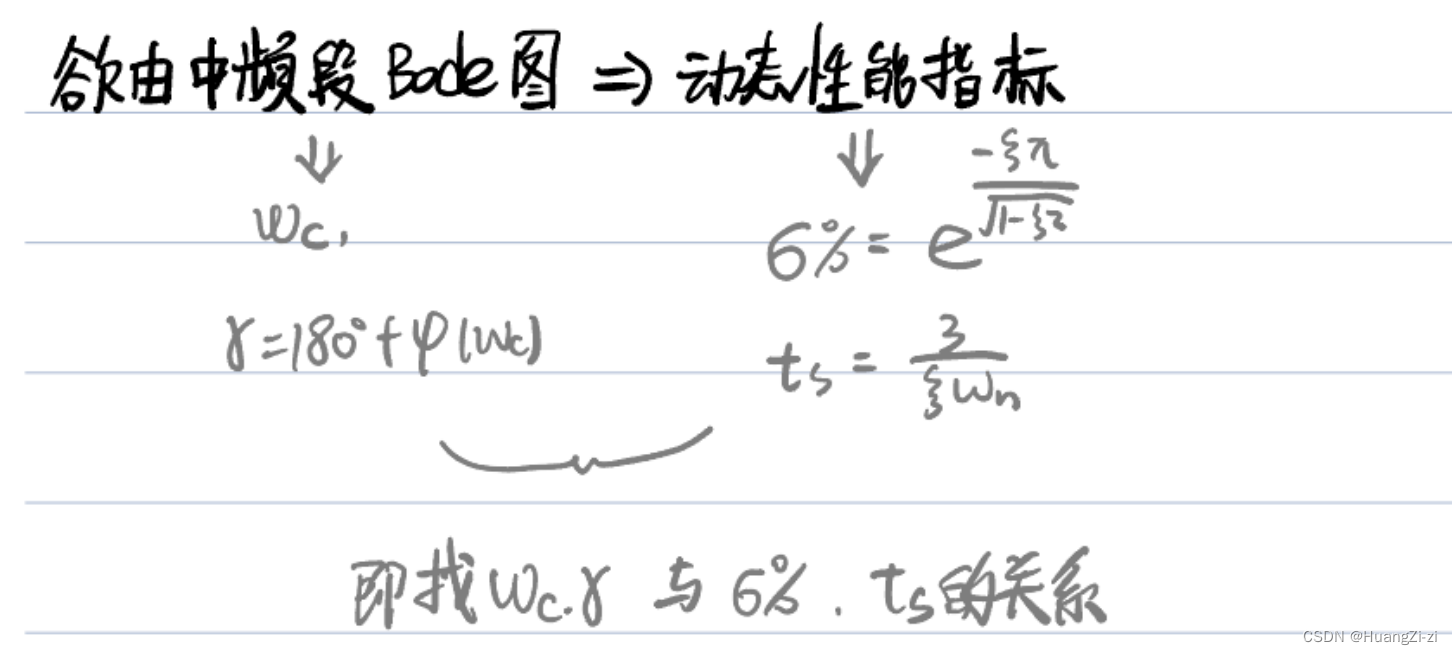 欲由中频段Bode图 ⇒ 动态性能指标
⇓ ⇓
ωc, σ% = e^(-ξπ/√(1-ξ²))
γ=180°+φ(ωc) ts = 3/(ξωn)
即找ωc.γ 与 σ%. ts的关系
CSDN @HuangZi-zi